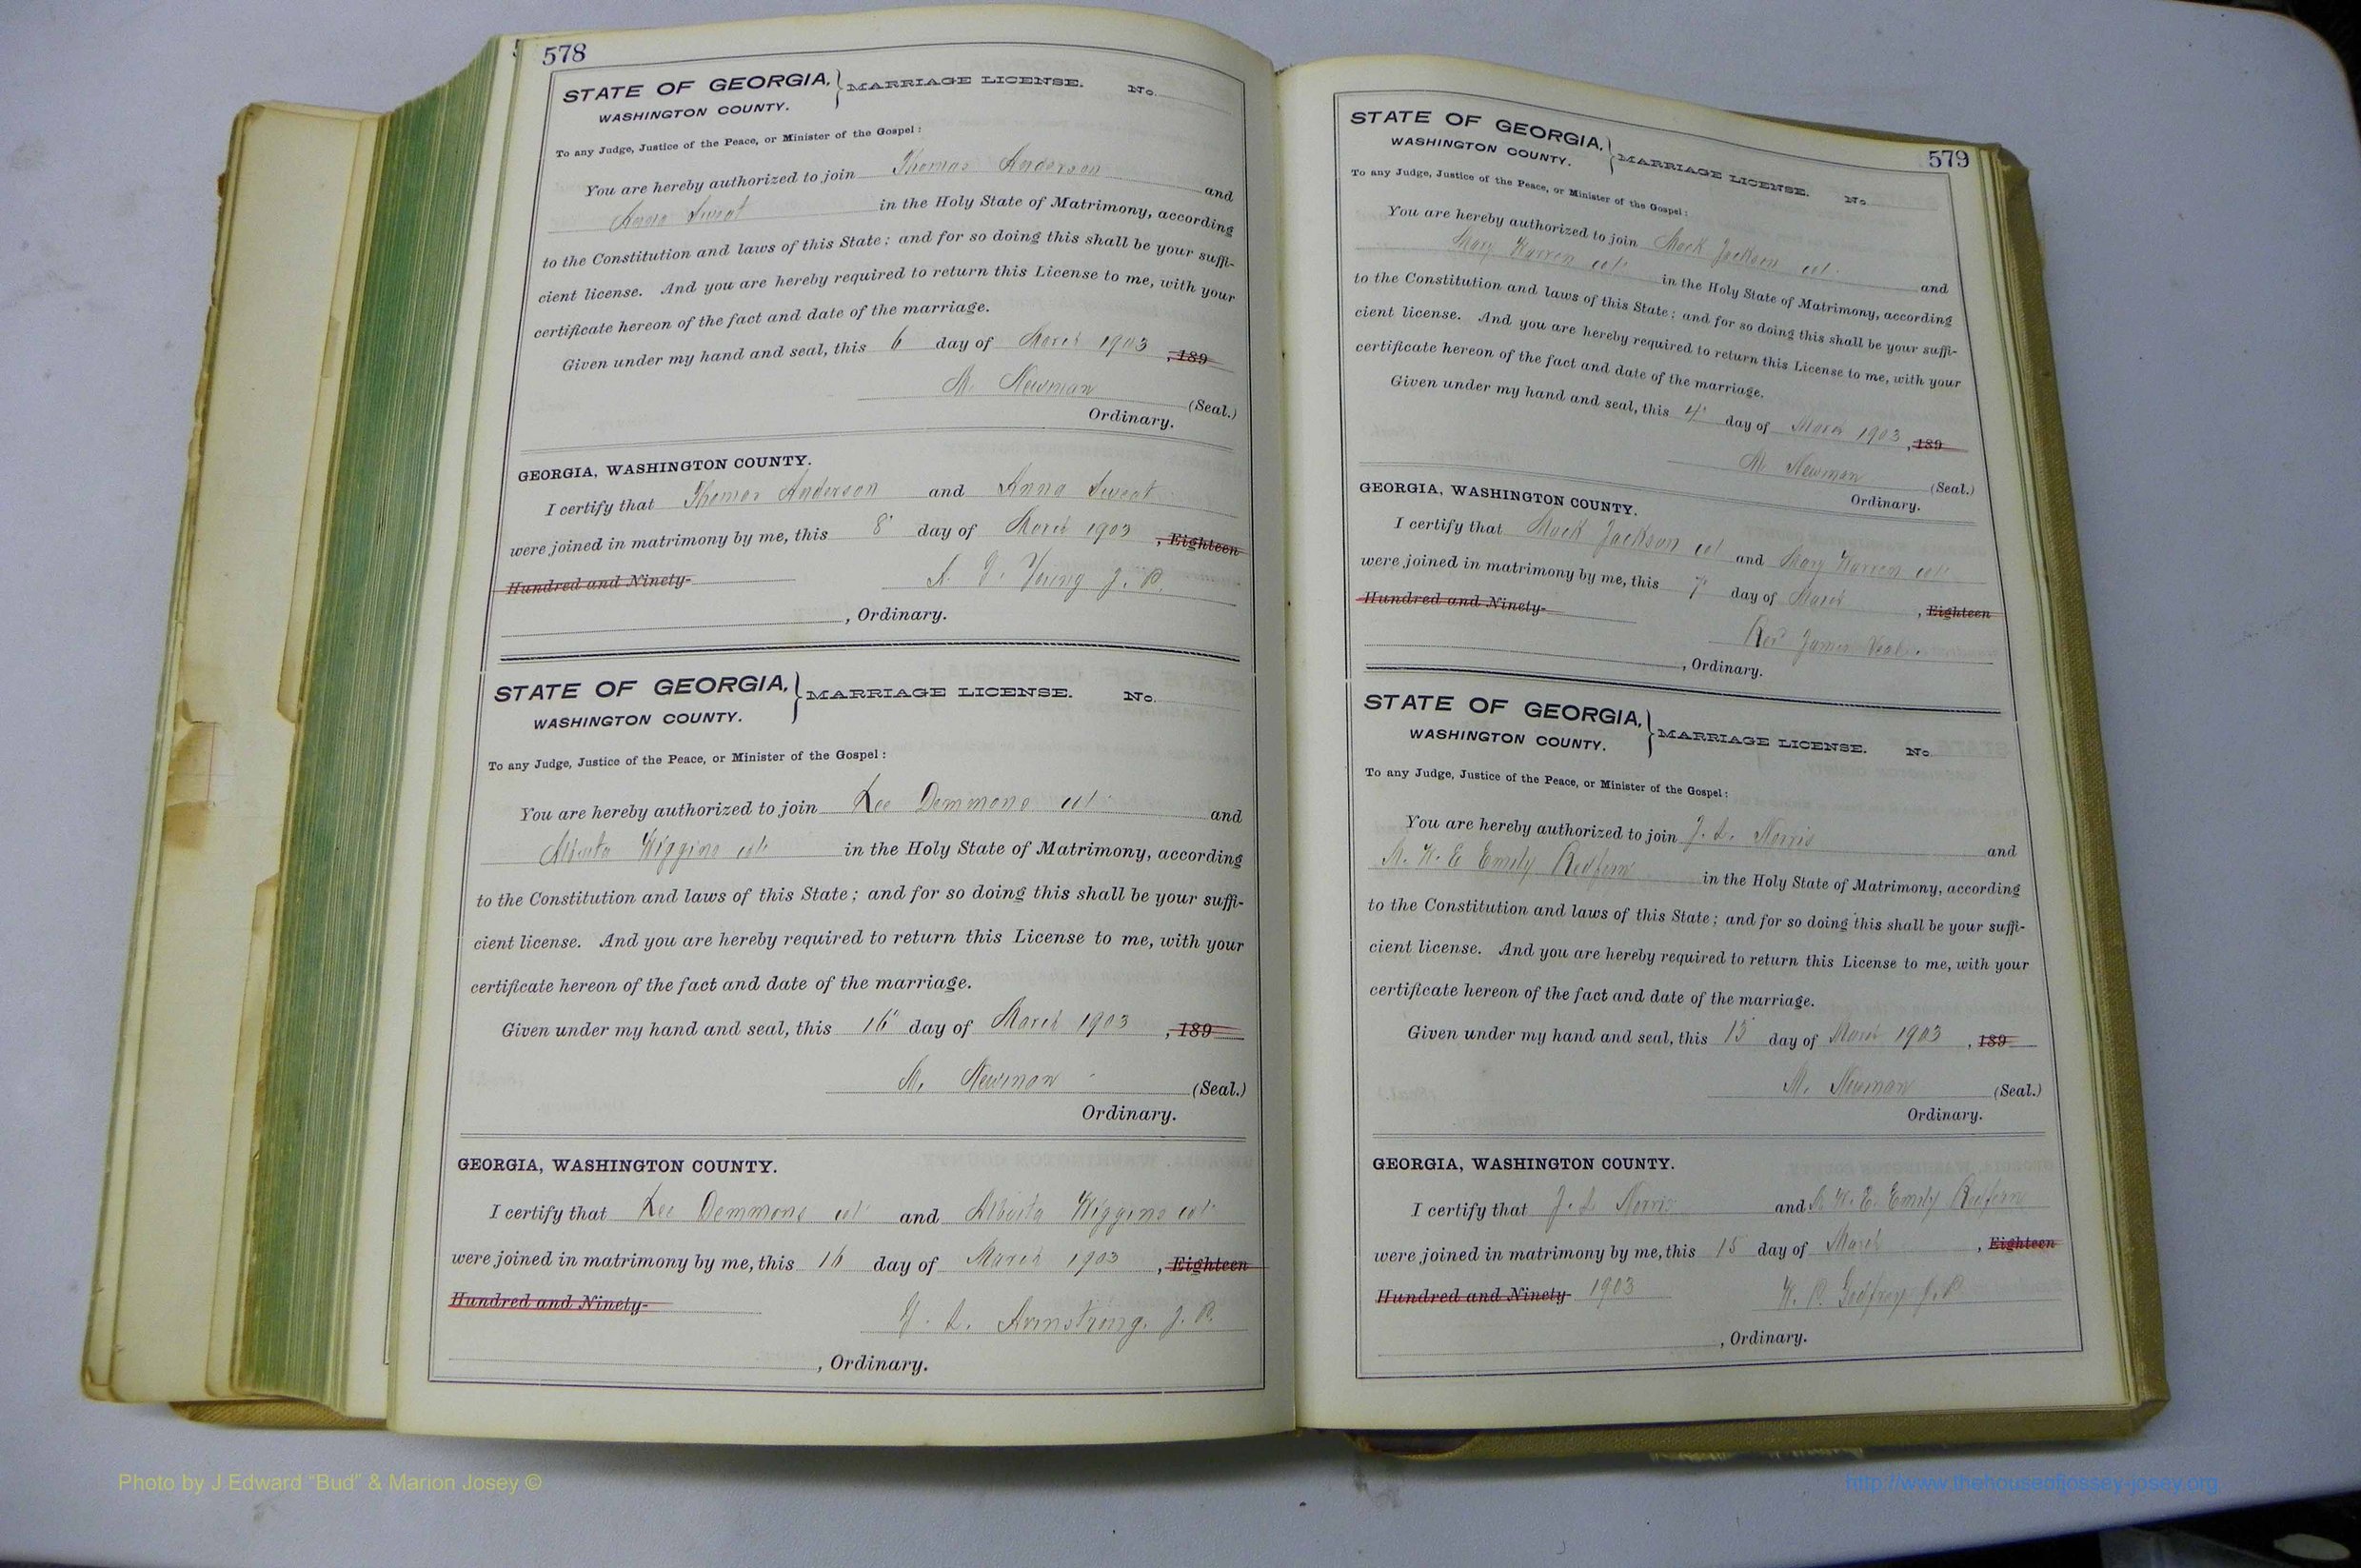 578
STATE OF GEORGIA, } MARRIAGE LICENSE. No.
WASHINGTON COUNTY.
To any Judge, Justice of the Peace, or Minister of the Gospel:
You are hereby authorized to join Thomas Anderson and
Anna Sweat in the Holy State of Matrimony, according
to the Constitution and laws of this State; and for so doing this shall be your suffi-
cient license. And you are hereby required to return this License to me, with your
certificate hereon of the fact and date of the marriage.
Given under my hand and seal, this 6 day of March 1903, 189
M. Newman (Seal.)
Ordinary.
GEORGIA, WASHINGTON COUNTY.
I certify that Thomas Anderson and Anna Sweat
were joined in matrimony by me, this 8" day of March 1903, Eighteen
Hundred and Ninety- Young J. P.
, Ordinary.
STATE OF GEORGIA, } MARRIAGE LICENSE. No.
WASHINGTON COUNTY.
To any Judge, Justice of the Peace, or Minister of the Gospel:
You are hereby authorized to join Lee Demmons col and
Alberta Wiggins col in the Holy State of Matrimony, according
to the Constitution and laws of this State; and for so doing this shall be your suffi-
cient license. And you are hereby required to return this License to me, with your
certificate hereon of the fact and date of the marriage.
Given under my hand and seal, this 16" day of March 1903, 189
M. Newman (Seal.)
Ordinary.
GEORGIA, WASHINGTON COUNTY.
I certify that Lee Demmons col and Alberta Wiggins col
were joined in matrimony by me, this 16 day of March 1903, Eighteen
Hundred and Ninety- Armstrong. J. P.
, Ordinary.
579
STATE OF GEORGIA, } MARRIAGE LICENSE. No.
WASHINGTON COUNTY.
To any Judge, Justice of the Peace, or Minister of the Gospel:
You are hereby authorized to join Mack Jackson col and
Mary Warren col in the Holy State of Matrimony, according
to the Constitution and laws of this State; and for so doing this shall be your suffi-
cient license. And you are hereby required to return this License to me, with your
certificate hereon of the fact and date of the marriage.
Given under my hand and seal, this 4" day of March 1903, 189
M. Newman (Seal.)
Ordinary.
GEORGIA, WASHINGTON COUNTY.
I certify that Mack Jackson col and Mary Warren col
were joined in matrimony by me, this 7" day of March, Eighteen
Hundred and Ninety- Rev James
, Ordinary.
STATE OF GEORGIA, } MARRIAGE LICENSE. No.
WASHINGTON COUNTY.
To any Judge, Justice of the Peace, or Minister of the Gospel:
You are hereby authorized to join J. L. Norris and
Emily Redfern in the Holy State of Matrimony, according
to the Constitution and laws of this State; and for so doing this shall be your suffi-
cient license. And you are hereby required to return this License to me, with your
certificate hereon of the fact and date of the marriage.
Given under my hand and seal, this day of March 1903, 189
M. Newman (Seal.)
Ordinary.
GEORGIA, WASHINGTON COUNTY.
I certify that J. L. Norris and Emily Redfern
were joined in matrimony by me, this 15 day of March, Eighteen
Hundred and Ninety- 1903 Godfrey J. P.
, Ordinary.
Photo by J Edward "Bud" & Marion Josey ©
http://www.thehouseofjossey-josey.org